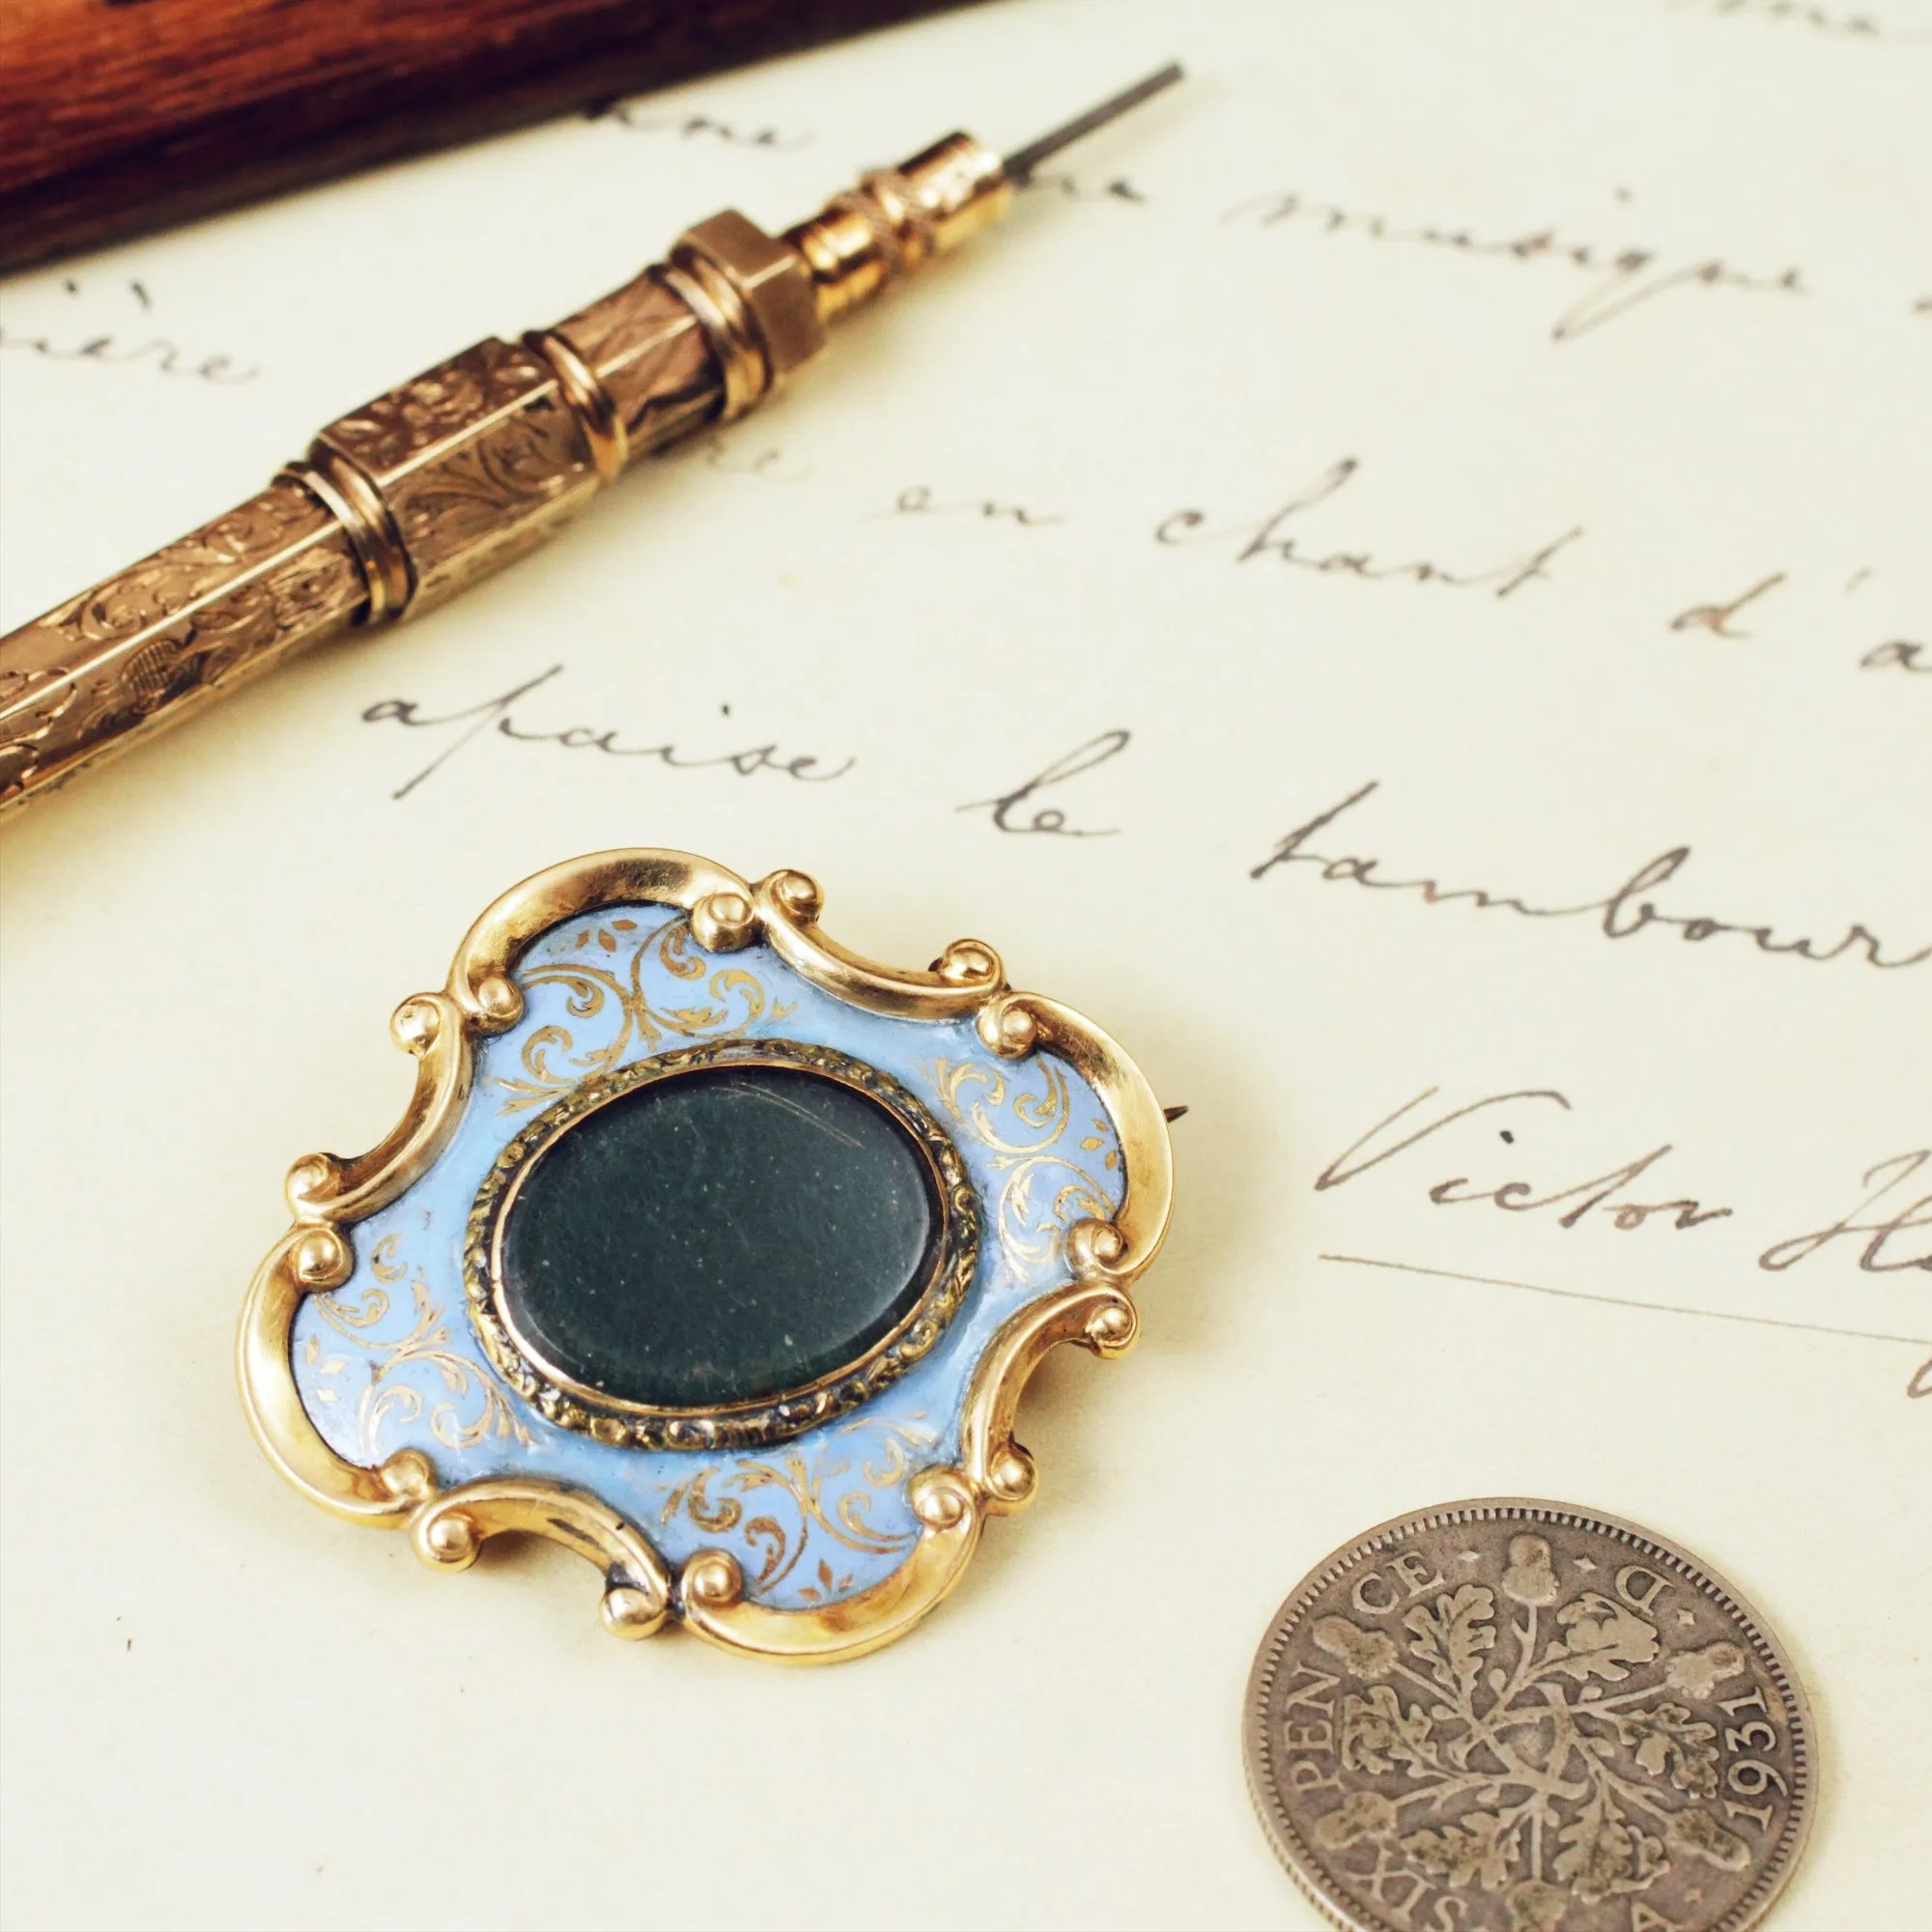 musique
ière
en chant d'a
apaise le tambour
Victor H
SIXPENCE A D 1931